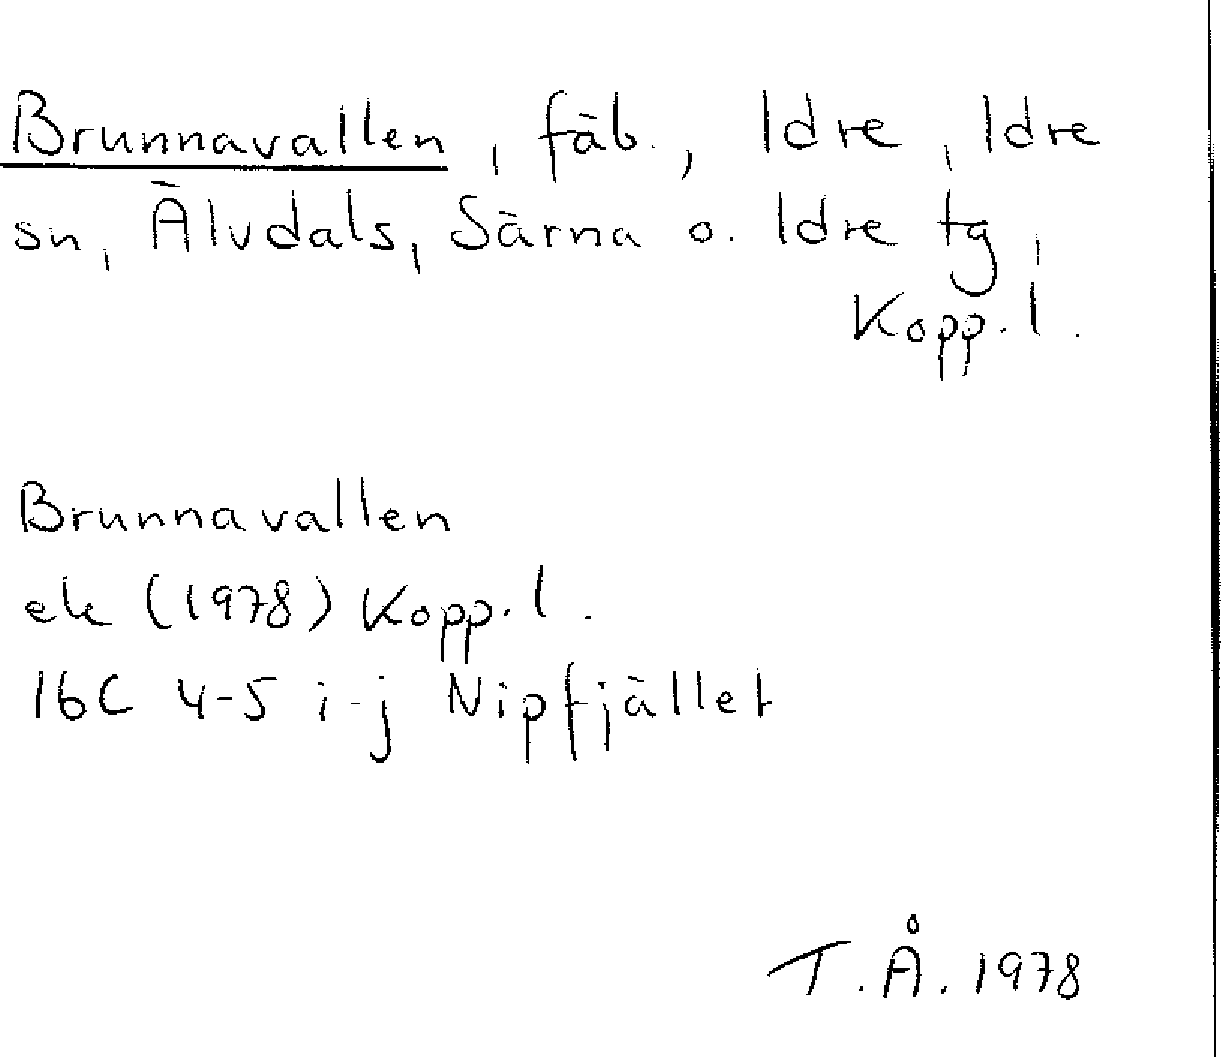 Brunnavallen, fäb., Idre, Idre
sn, Älvdals, Särna o. Idre tg,
Kopp. l.
Brunnavallen
ek (1978) Kopp. l.
16C 4-5 i-j Nipfjället
T.Å. 1978